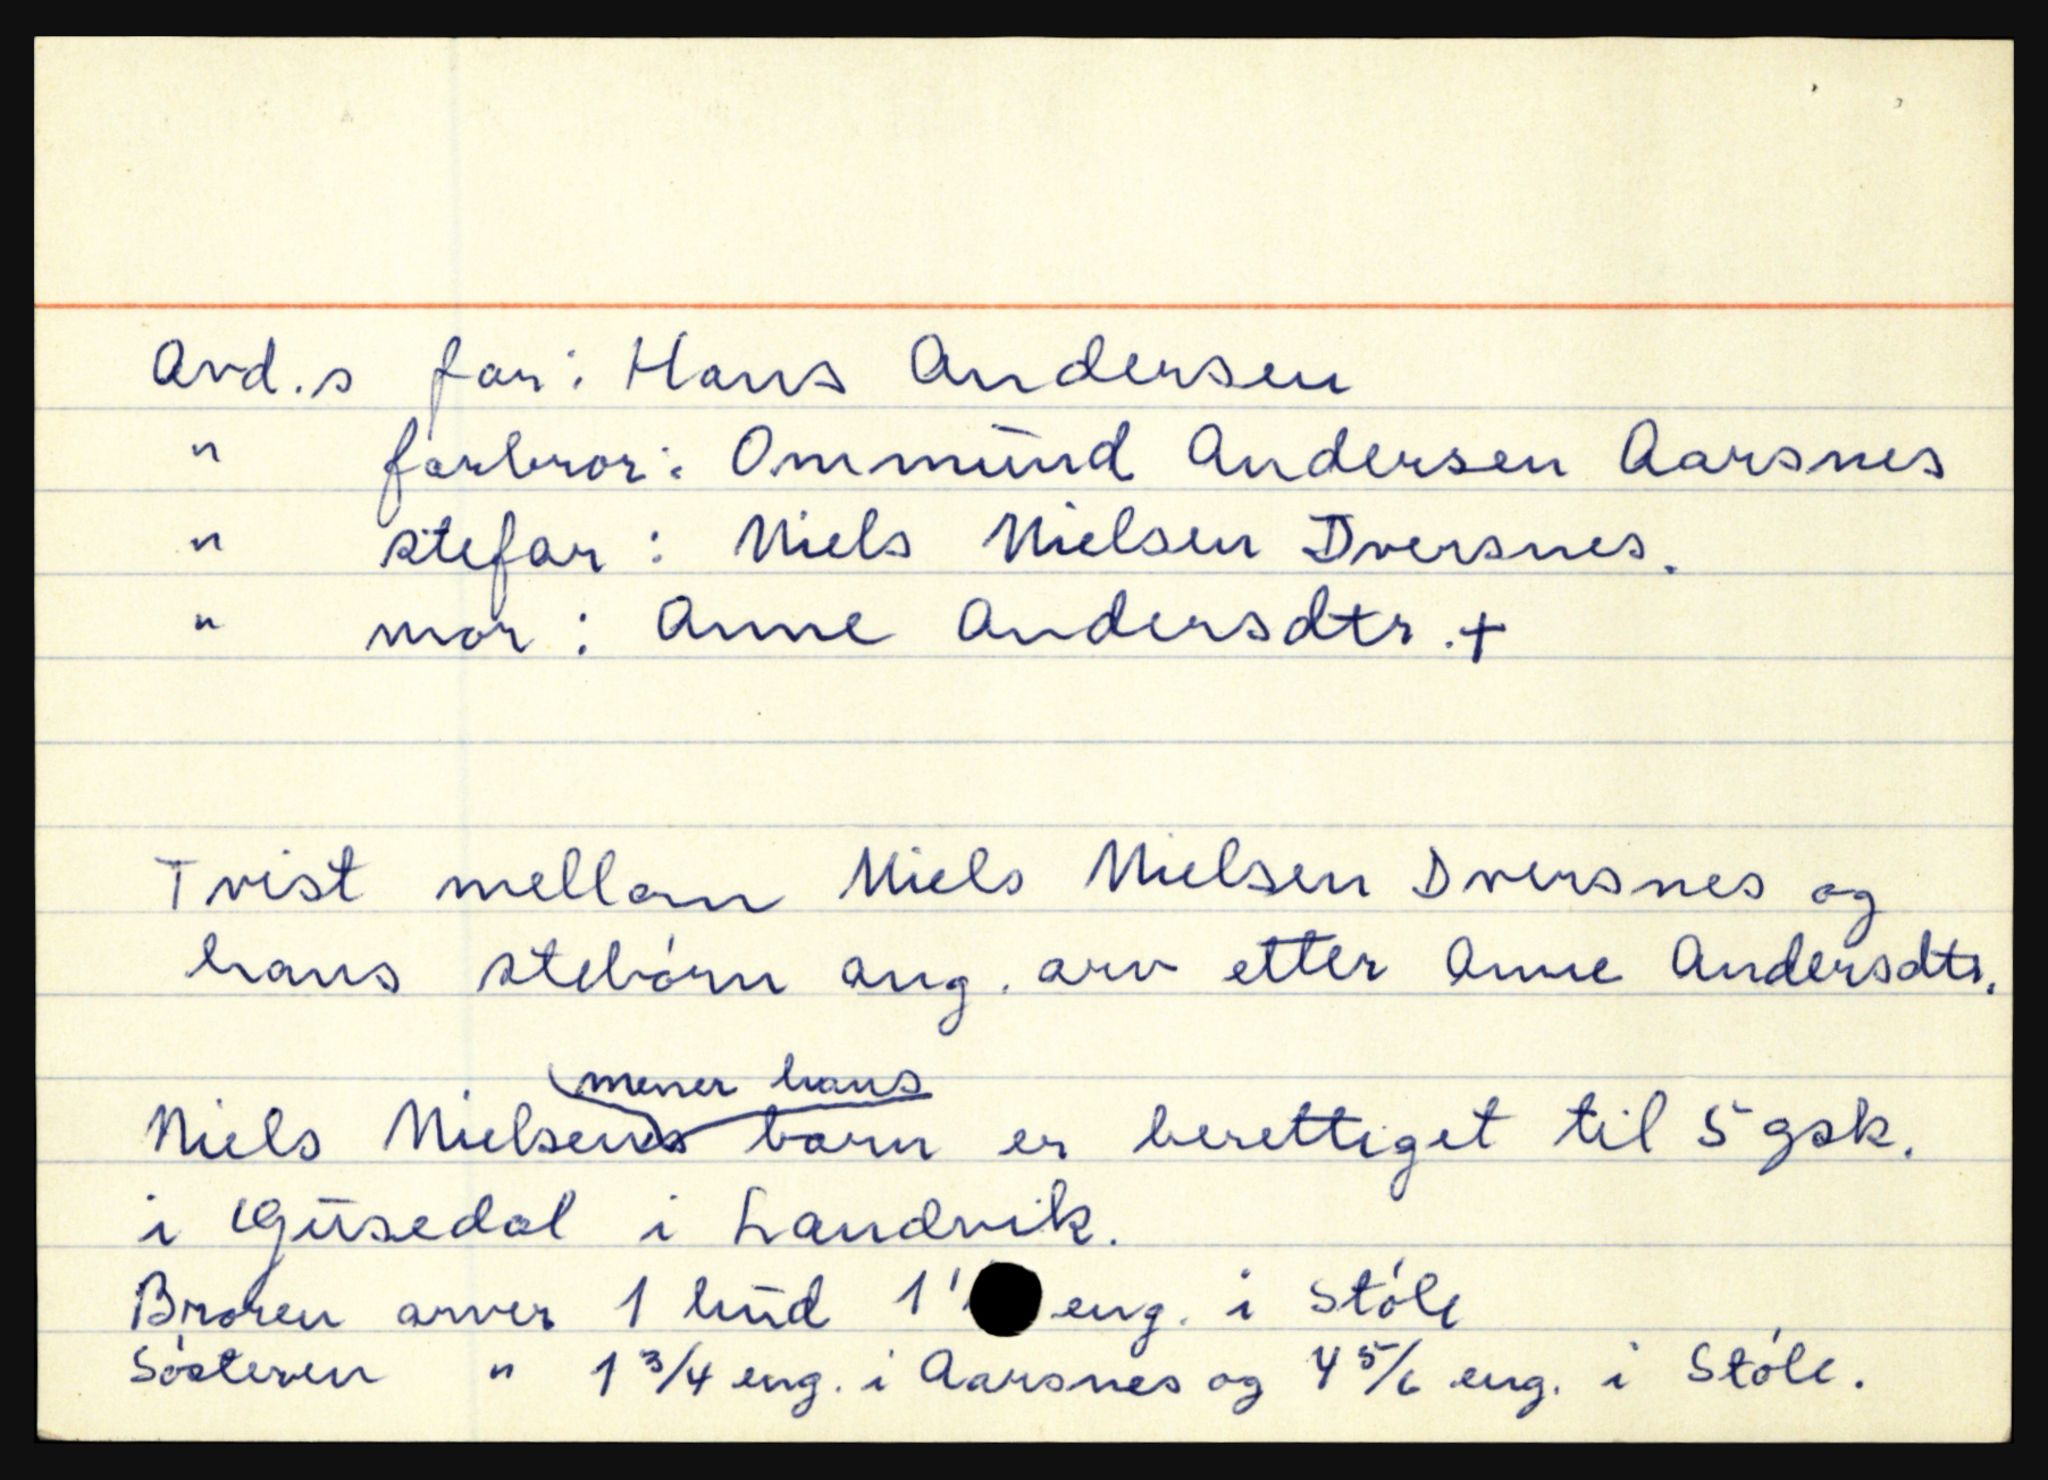 Avd.s far: Hans Andersen
" farbror: Ommund Andersen Aarsnes
" stefar: Niels Nielsen Dversnes.
" mor: Anne Andersdtr. +
Tvist mellom Niels Nielsen Dversnes og
hans stebórn ang. arv etter Anne Andersdtr.
mener hans
Niels Nielsen barn er berettiget til 5 gsk.
i Gusedal i Landvik.
Broren arver 1 hud 1 eng. i Stóle
Sósteren " 1 3/4 eng. i Aarsnes og 4 5/6 eng. i Stóle.